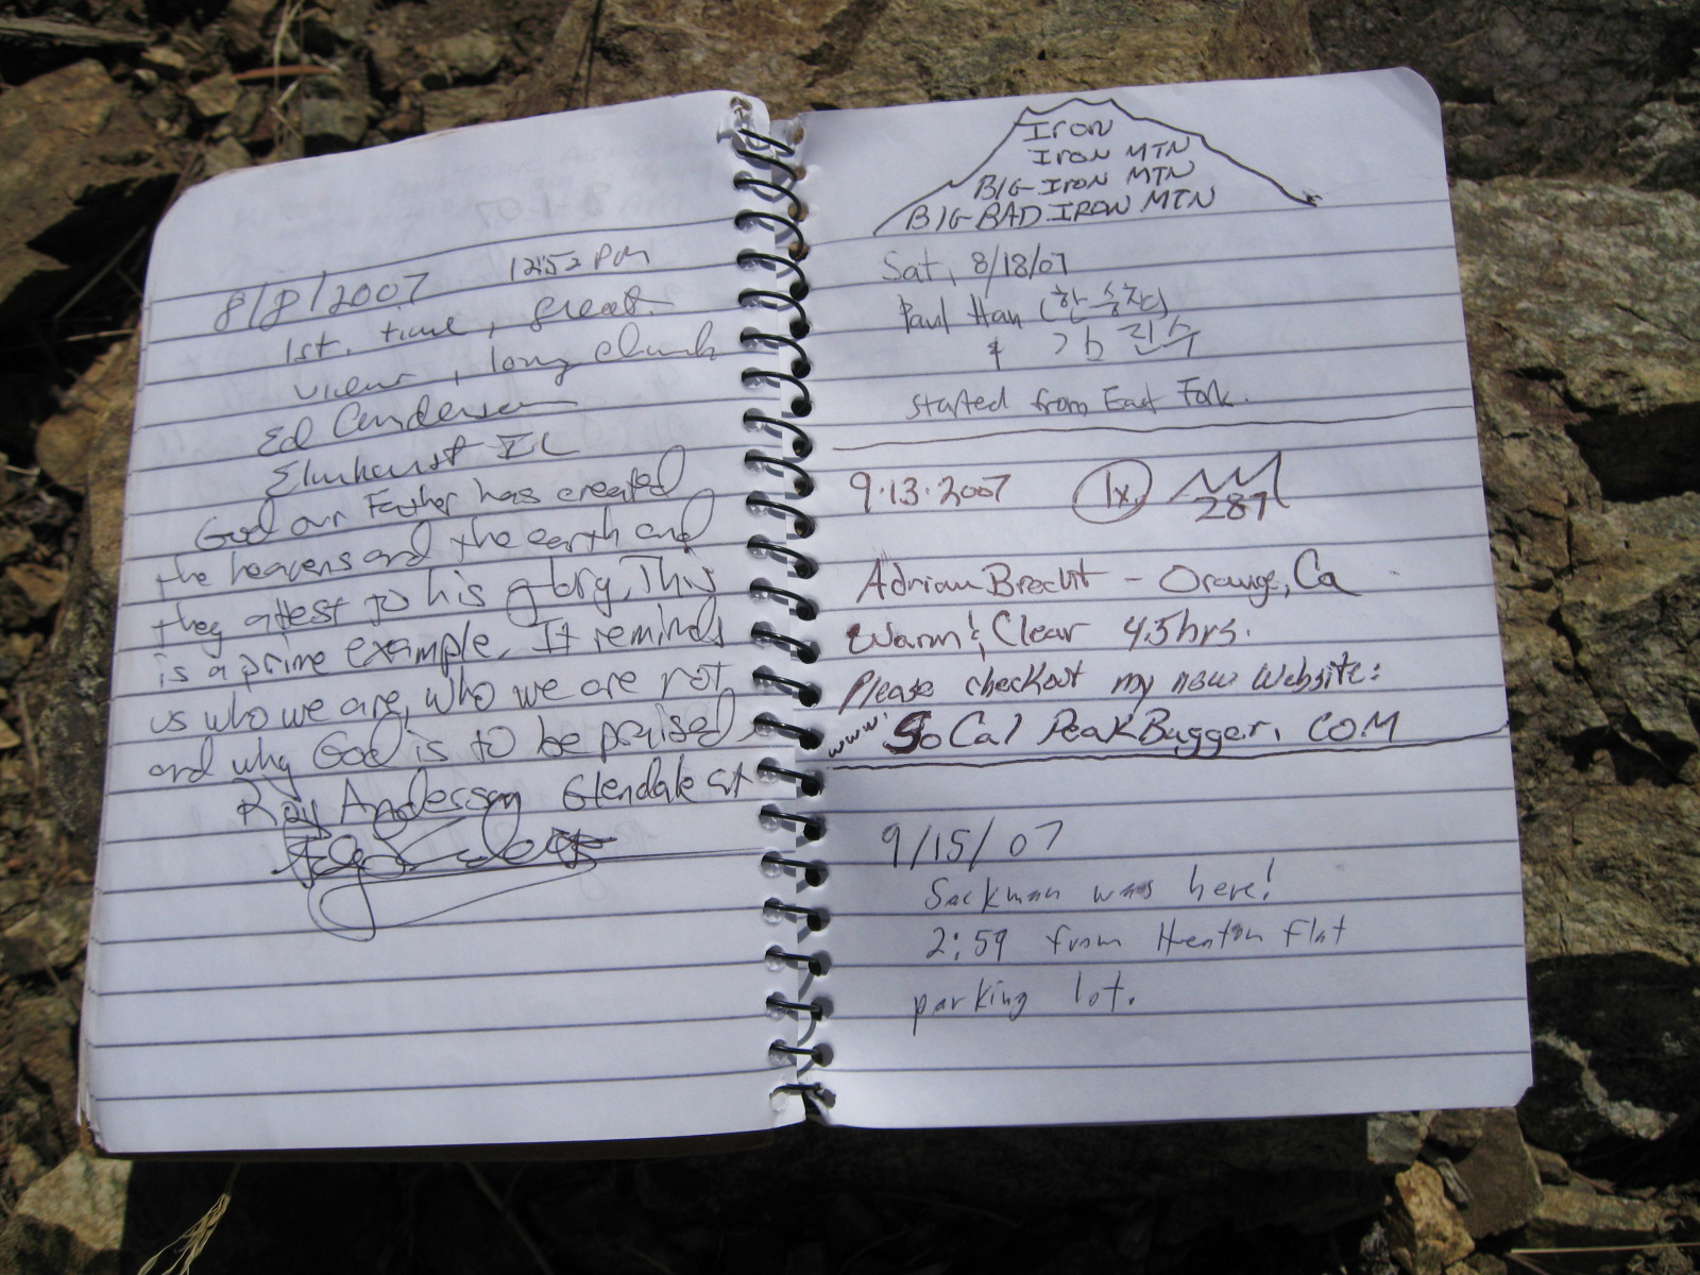 8/8/2007 12:52 PM
1st. time, great
view, long climb
Ed Anderson
Elmhurst IL
God our Father has created
the heavens and the earth and
they attest to his glory. This
is a prime example. It reminds
us who we are, who we are not
and why God is to be praised
Roy Anderson Glendale
Iron
Iron MTN
BIG-IRON MTN
BIG-BAD IRON MTN
Sat, 8/18/07
Paul Han (한승천)
& 김진수
started from East Fork.
9.13.2007 1x. 287
Adrian Brecht - Orange, Ca
Warm & Clear 4.5hrs.
Please checkout my new website:
www. SoCal PeakBagger. COM
9/15/07
Sackman was here!
2:59 from Heaton Flat
parking lot.